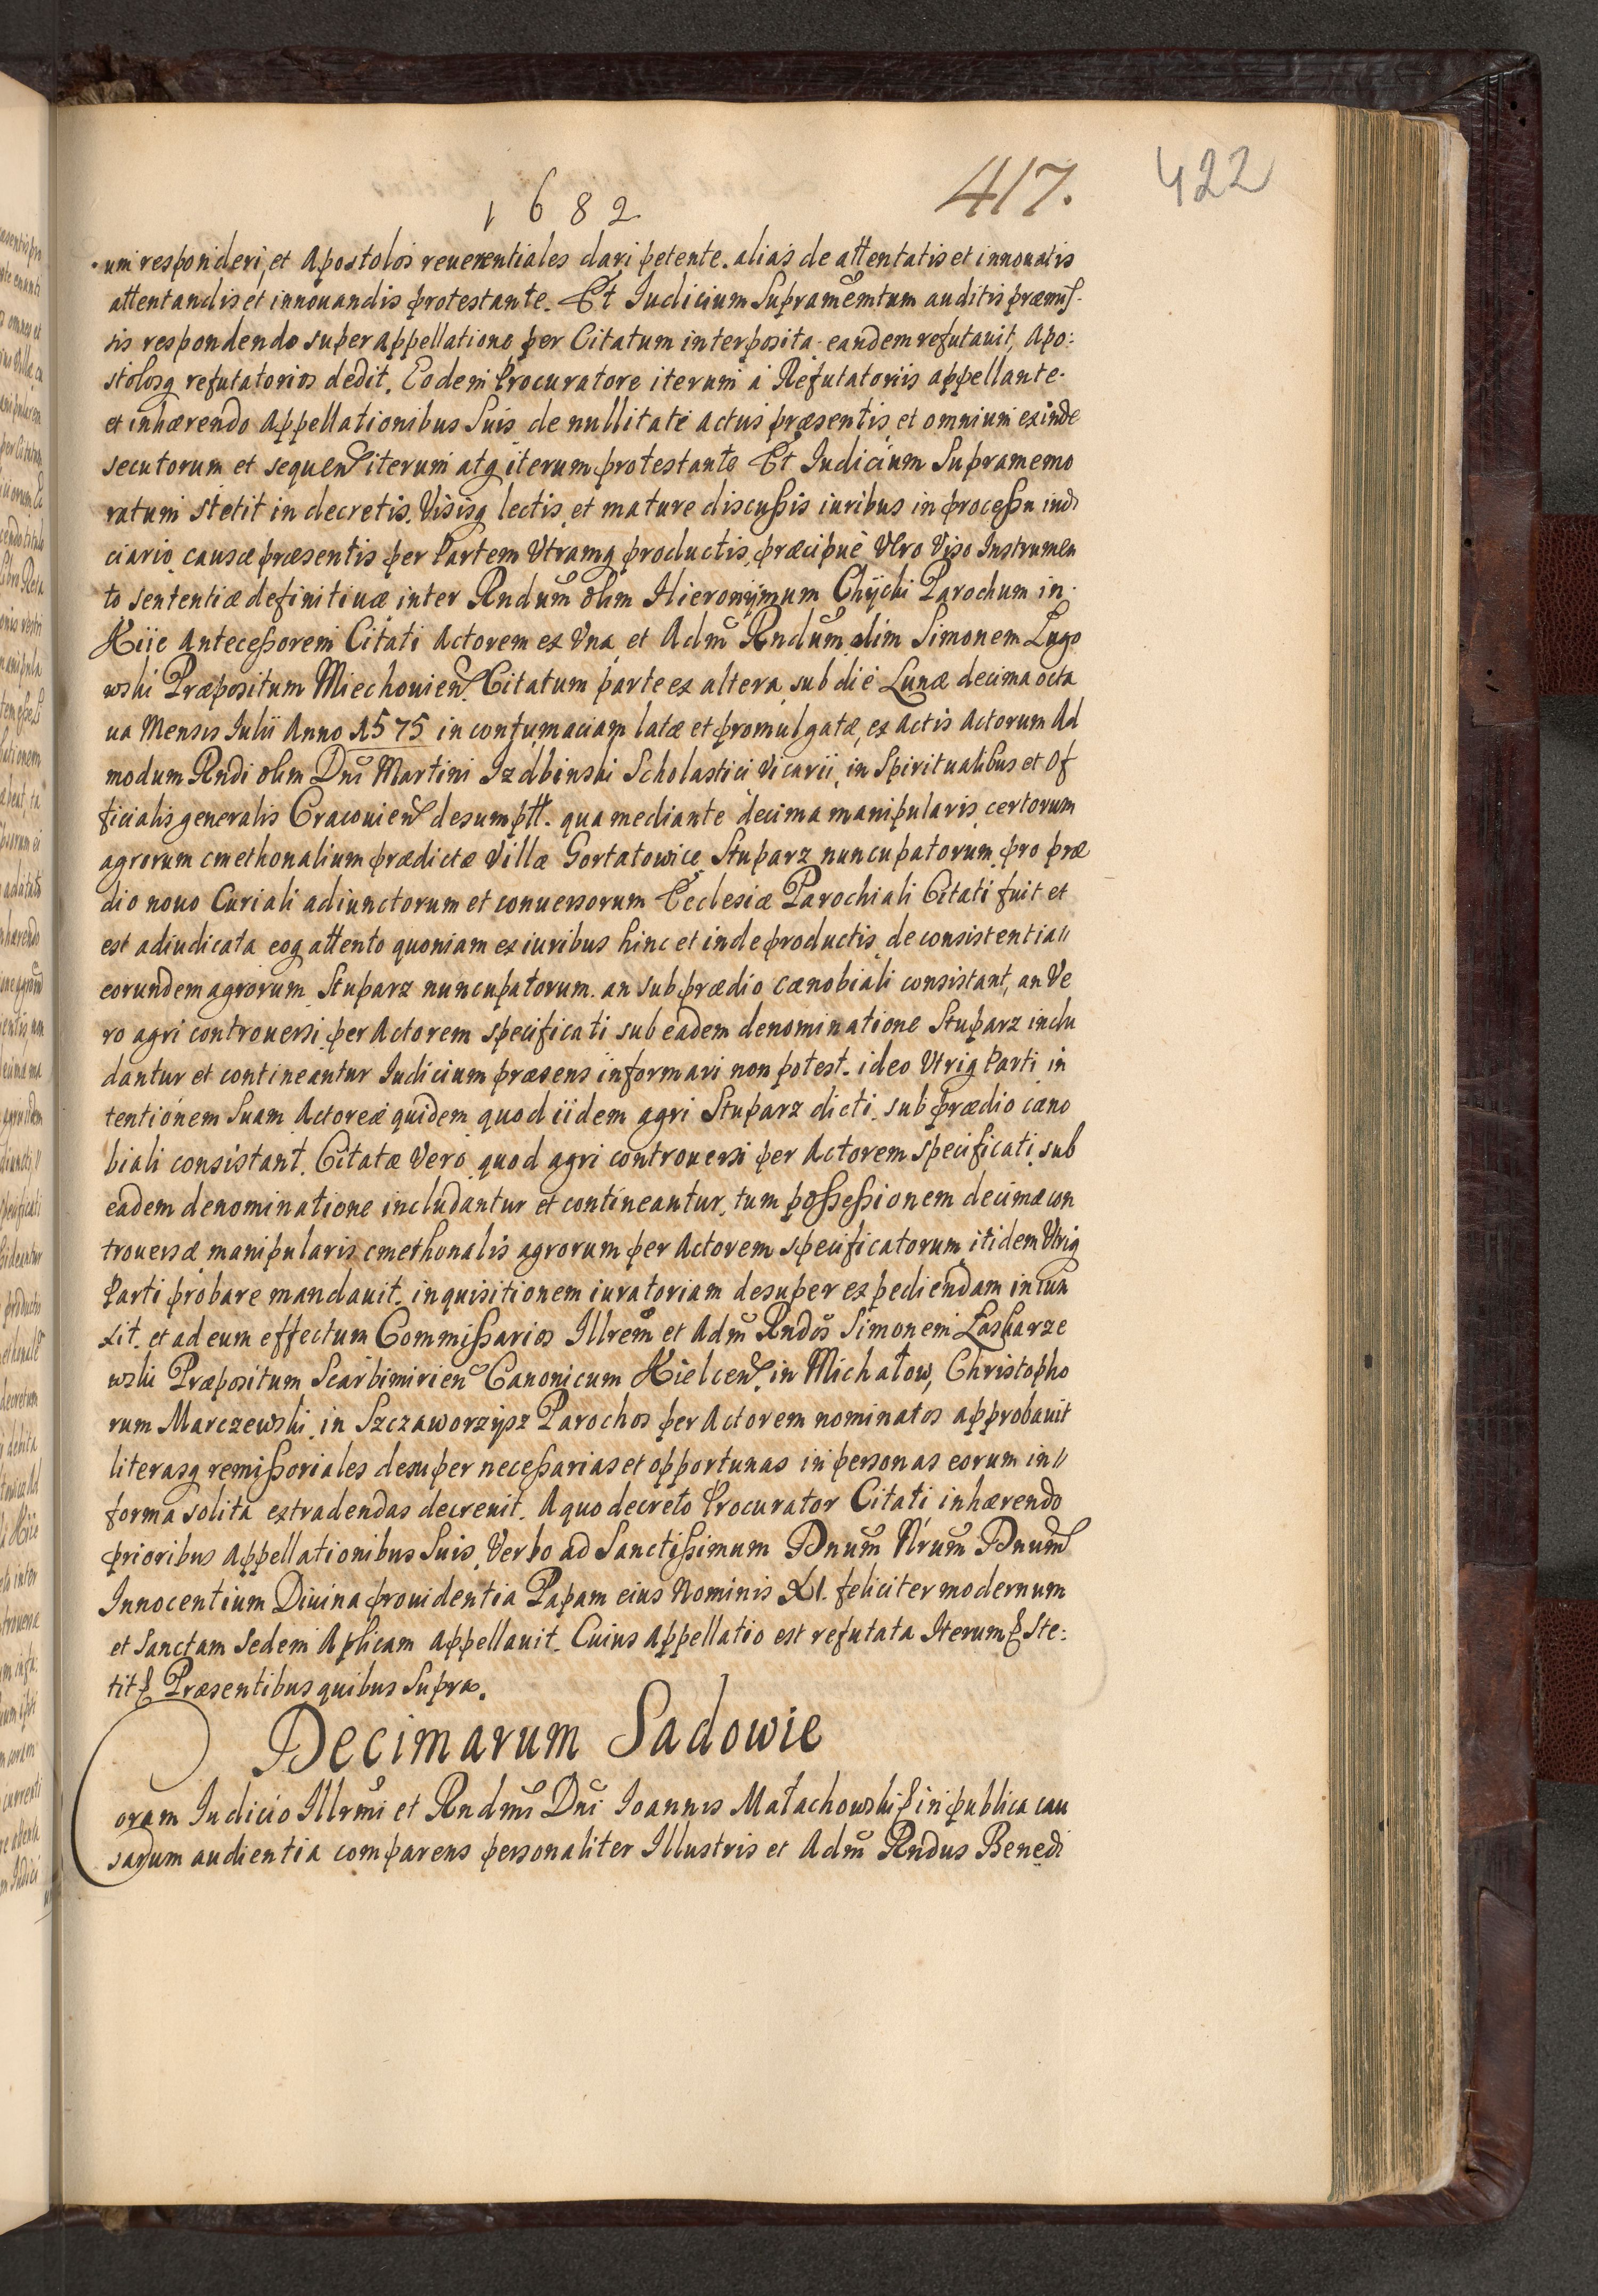 1682
417.
422
um responderi, et Apostolos reuerentiales dari petente. alias de attentatis et innouatis
attentandis et innouandis protestante. Et Iudicium Supramemtum auditis præmiſ-
sis respondendo super appellatione per Citatum interposita eandem refutauit, Apo:
stolosq refutatorios dedit. Eodem Procuratore iterum a Refutatoriis appellante.
et inhærendo Appellationibus Suis de nullitate actus præsentis et omnium exinde
secutorum et sequen iterum atq iterum protestante Et Iudicium Supramemo
ratum stetit in decretis. Visisq lectis et mature discußis iuribus in proceßu iudi
ciario causæ præsentis per Partem Vtramq productis, præcipuè Vero Viso Instrumen
to sententiæ definitiuæ inter Rndum olim Hieronymum Chycki Parochum in
Kiie Anteceßorem Citati Actorem ex Vna et Adm Rndum olim Simonem Lugo
wski Præpositum Miechouien Citatum parte ex altera sub die Lunæ decima octa
ua Mensis Iulii Anno 1575 in contumaciam latæ et promulgatæ, ex Actis Actorum Ad
modum Rndi olim Dni Martini Izdbinski Scholastici Vicarii in Spiritualibus et Of
ficialis generalis Cracouien desumptt. qua mediante decima manipularis certorum
agrorum cmethonalium prædictæ Villæ Gortatowice Stuparz nuncupatorum pro præ
dio nouo Curiali adiunctorum et conuersorum Ecclesiæ Parochiali Citati fuit et
est adiudicata eoq attento quoniam ex iuribus hinc et inde productis de consistentia"
eorundem agrorum Stuparz nuncupatorum. an sub prædio cænobiali consistant, an Ve
ro agri controuersi per Actorem specificati sub eadem denominatione Stuparz inclu
dantur et contineantur Iudicium præsens informari non potest. ideo Vtriq Parti in
tentionem Suam Actoreæ quidem quod iidem agri Stuparz dicti sub prædio cæno
biali consistant. Citatæ Vero quod agri controuersi per Actorem specificati sub
eadem denominatione includantur et contineantur, tum poßeßionem decimæ con
trouersæ manipularis cmethonalis agrorum per Actorem specificatorum itidem Vtriq
Parti probare mandauit. inquisitionem iuratoriam desuper expediendam iniun
xit. et ad eum effectum Commißarios Illrem et Adm Rndos Simonem Laskarze
wski Præpositum Scarbimirien Canonicum Kielcen in Michałow, Christopho
rum Marczewski in Szczaworzysz Parochos per Actorem nominatos approbauit
literasq remißoriales desuper neceßarias et opportunas in personas eorum in"
forma solita extradendas decreuit. A quo decreto Procurator Citati inhærendo
prioribus Appellationibus Suis Verbo ad Sanctißimum Dnum Nrum Dnum
Innocentium Diuina prouidentia Papam eius Nominis XI. feliciter modernum
et Sanctam Sedem Aplicam Appellauit. Cuius Appellatio est refutata Iterum & Ste:
tit & Præsentibus quibus Supra.
Decimarum Sadowie
Coram Iudicio Illrmi et Rndmi Dni Ioannis Małachowski & in publica cau
sarum audientia comparens personaliter Illustris et Adm Rndus Benedi